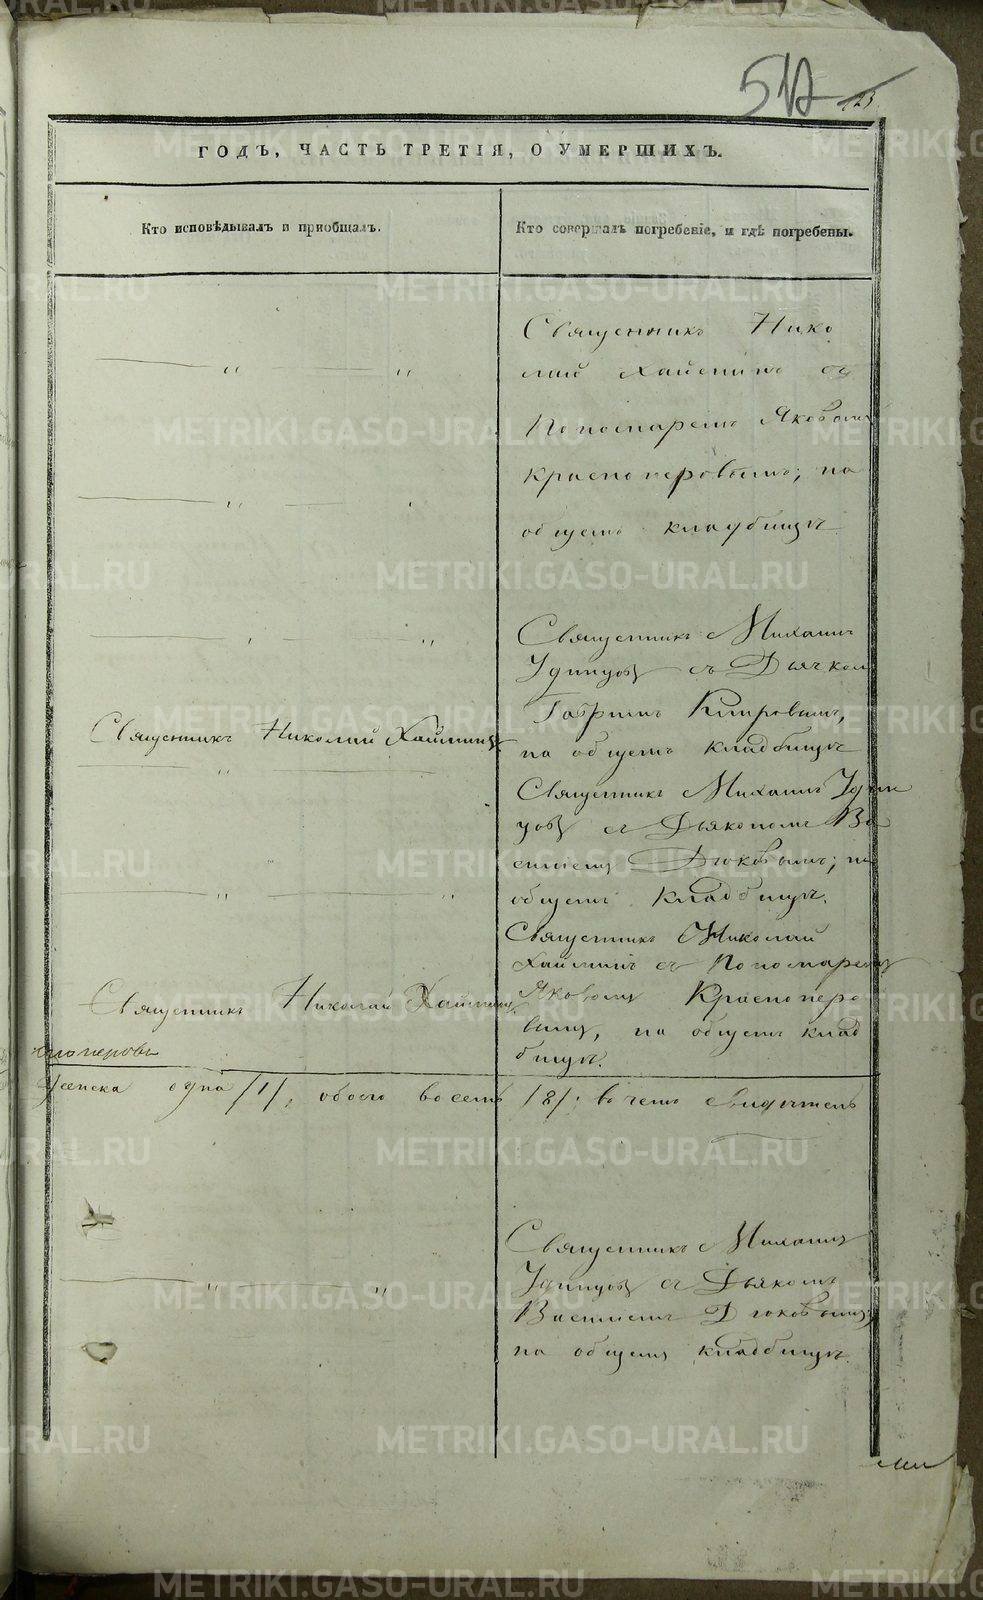 517
123
ГОДЪ, ЧАСТЬ ТРЕТІЯ, О УМЕРШИХЪ.
Кто исповѣдывалъ и приобщалъ.
Кто совершалъ погребеніе, и гдѣ погребены.
Священникъ Нико
лай Хайминъ съ
Пономаремъ Яковомъ
Красноперовымъ, на
общемъ кладбищѣ
Священникъ Михаилъ
Удинцовъ съ Дьячкомъ
Гавріиломъ Кипровымъ,
на общемъ кладбищѣ
Священникъ Николай Хайминъ
Священникъ Михаилъ Удин
цовъ съ Дьякономъ Ва
силіемъ Дюковымъ, на
общемъ кладбищѣ.
Священникъ Николай
Хайминъ съ Пономаремъ
Яковомъ Красноперо
вымъ, на общемъ клад
бищѣ.
Священникъ Николай Хайминъ
женска одна /1/, обоего восемь /8/. въ чемъ свидѣтель
Священникъ Михаилъ
Удинцовъ съ Дьякономъ
Василіемъ Дюковымъ
на общемъ кладбищѣ.
METRIKI.GASO-URAL.RU